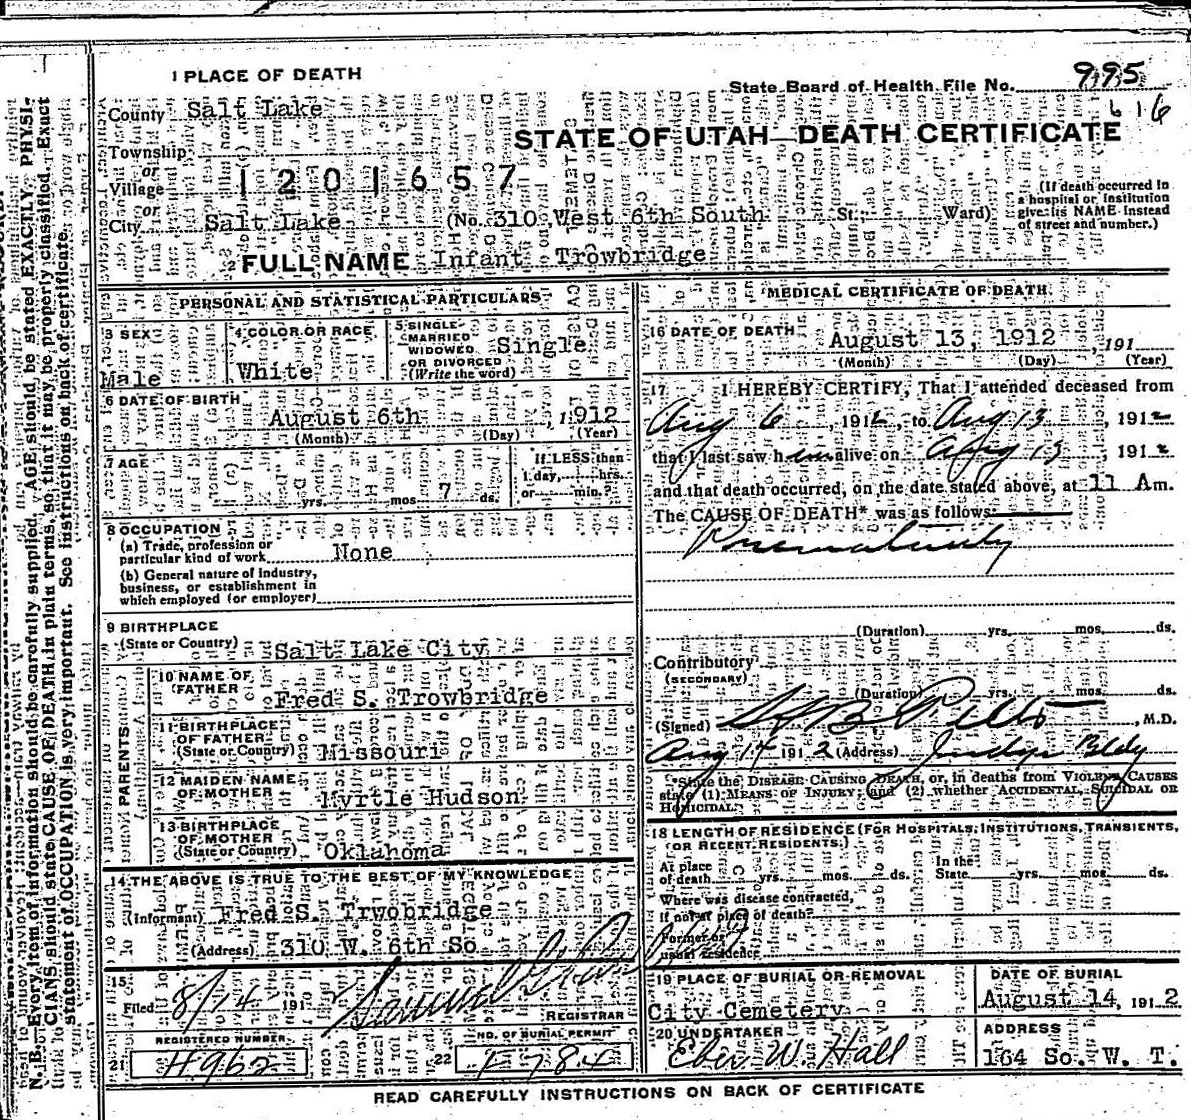 1 PLACE OF DEATH
State Board of Health File No. 995
616
County Salt Lake
STATE OF UTAH—DEATH CERTIFICATE
Township
or
Village
1201657
or
City Salt Lake (No. 310 West 6th South St.; Ward)
(If death occurred in a hospital or institution give its NAME instead of street and number.)
2 FULL NAME Infant Trowbridge
PERSONAL AND STATISTICAL PARTICULARS
3 SEX
Male
4 COLOR OR RACE
White
5 SINGLE
MARRIED
WIDOWED
OR DIVORCED
(Write the word)
Single
6 DATE OF BIRTH
August 6th, 1912
(Month) (Day) (Year)
7 AGE
yrs. mos. 7 ds.
If LESS than
1 day, hrs.
or min.?
8 OCCUPATION
(a) Trade, profession or
particular kind of work None
(b) General nature of industry,
business, or establishment in
which employed (or employer)
9 BIRTHPLACE
(State or Country) Salt Lake City
PARENTS
10 NAME OF
FATHER Fred S. Trowbridge
11 BIRTHPLACE
OF FATHER
(State or Country) Missouri
12 MAIDEN NAME
OF MOTHER Myrtle Hudson
13 BIRTHPLACE
OF MOTHER
(State or Country) Oklahoma
14 THE ABOVE IS TRUE TO THE BEST OF MY KNOWLEDGE
(Informant) Fred S. Trwobridge
(Address) 310 W. 6th So
15
Filed 8/14 191 Samuel G.
REGISTRAR
REGISTERED NUMBER
21 H962
NO. OF BURIAL PERMIT
22
MEDICAL CERTIFICATE OF DEATH
16 DATE OF DEATH
August 13, 1912 191
(Month) (Day) (Year)
17 I HEREBY CERTIFY, That I attended deceased from
Aug 6, 1912, to Aug 13, 1912
that I last saw him alive on Aug 13, 1912
and that death occurred, on the date stated above, at 11 A m.
The CAUSE OF DEATH* was as follows:
Prematurity
(Duration) yrs. mos. ds.
Contributory
(SECONDARY)
(Duration) yrs. mos. ds.
(Signed) M.D.
Aug 14 1912 (Address) Judge Bldg
*State the DISEASE CAUSING DEATH, or, in deaths from VIOLENT CAUSES
state (1) MEANS OF INJURY; and (2) whether ACCIDENTAL, SUICIDAL OR
HOMICIDAL.
18 LENGTH OF RESIDENCE (FOR HOSPITALS, INSTITUTIONS, TRANSIENTS,
OR RECENT RESIDENTS.)
At place
of death yrs. mos. ds.
In the
State yrs. mos. ds.
Where was disease contracted,
If not at place of death?
Former or
usual residence
19 PLACE OF BURIAL OR REMOVAL
City Cemetery
DATE OF BURIAL
August 14, 1912
20 UNDERTAKER
Eber W. Hall
ADDRESS
164 So. W. T.
READ CAREFULLY INSTRUCTIONS ON BACK OF CERTIFICATE
N. B. Every item of information should be carefully supplied. AGE should be stated EXACTLY. PHYSI-
CIANS should state CAUSE OF DEATH in plain terms, so that it may be properly classified. Exact
statement of OCCUPATION is very important. See instructions on back of certificate.